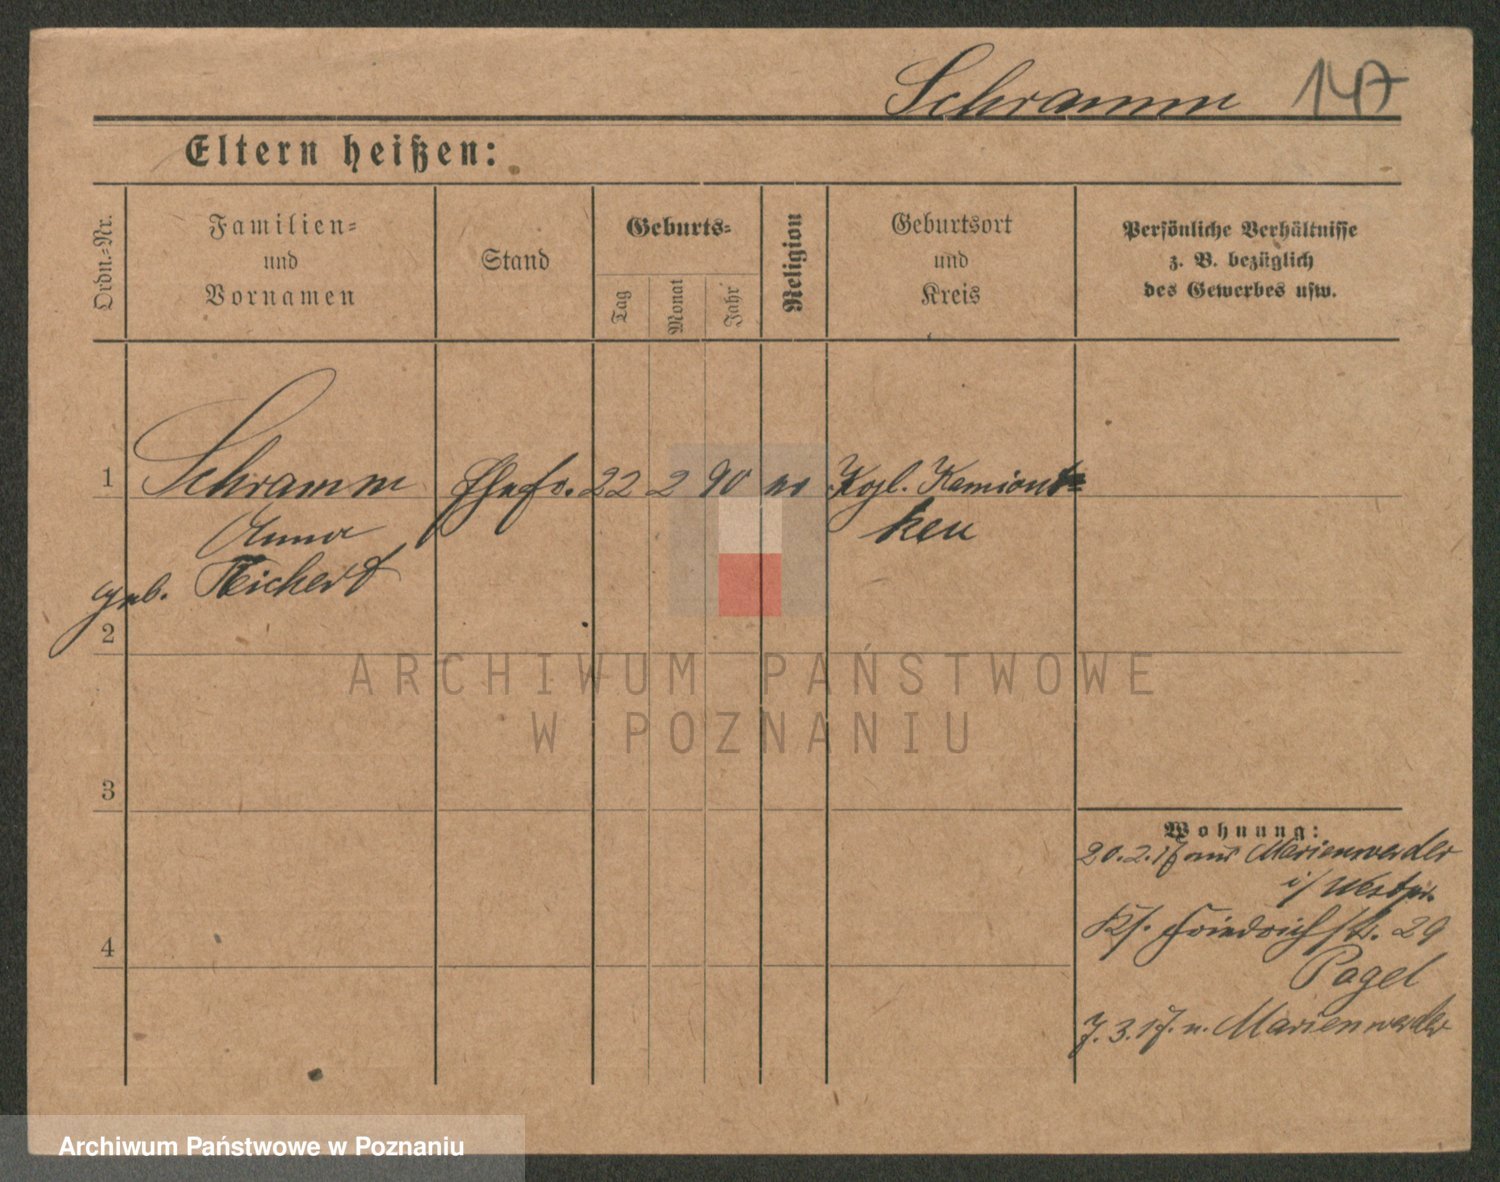 Schramm 147
Eltern heißen:
Ordn.-Nr.
Familien-
und
Vornamen
Stand
Geburts-
Tag
Monat
Jahr
Religion
Geburtsort
und
Kreis
Persönliche Verhältnisse
z. B. bezüglich
des Gewerbes usw.
1 Schramm Ehefr. 22 2 90 ev Kgl. Kamiont-
Anna ken
geb. Reichert
2
ARCHIWUM PAŃSTWOWE
W POZNANIU
3
Wohnung:
20.2.17 aus Marienwerder
i/ Westpr.
Ks. Friedrichstr. 29
4
Pagel
7.3.17. n. Marienwerder
Archiwum Państwowe w Poznaniu